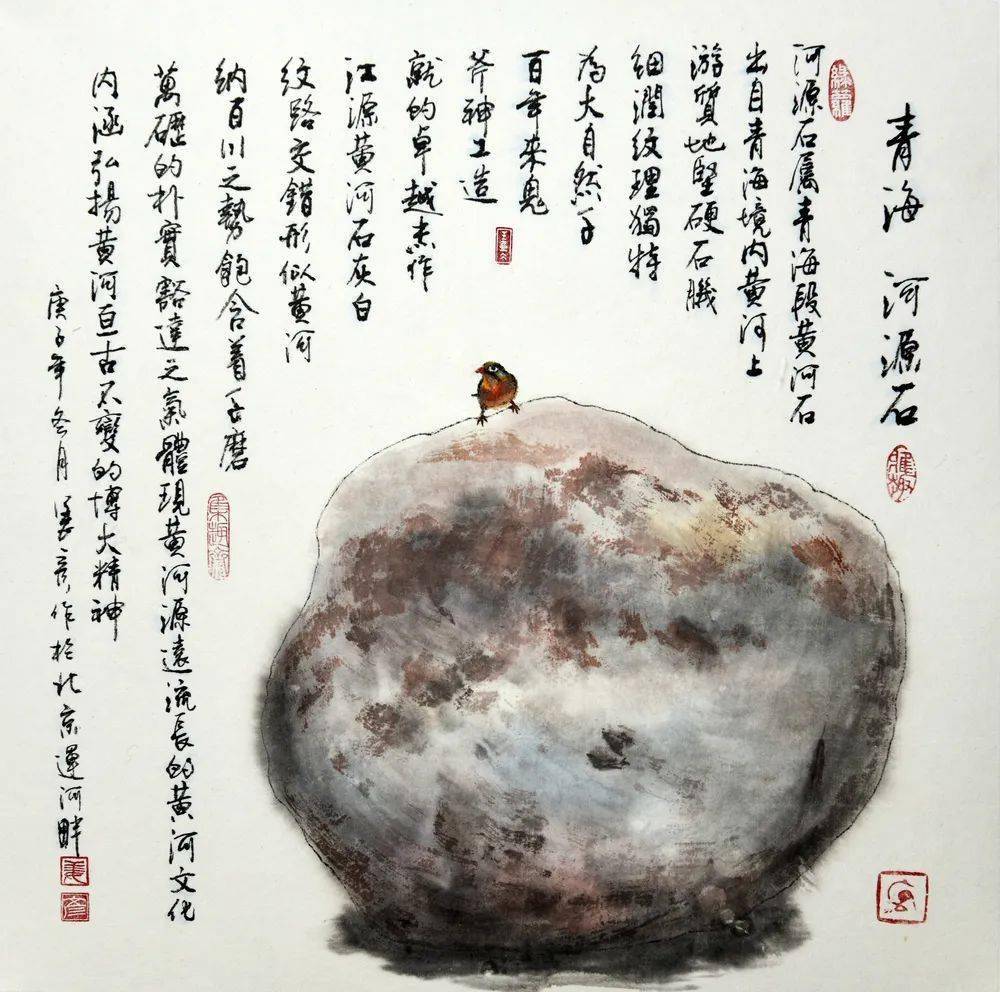 青海 河源石
雅趣
綠蘿
河源石屬青海段黃河石
出自青海境内黃河上
游質地堅硬石
細潤紋理獨特
為大自然千
百年来鬼
斧神工造
就的卓越杰作
江源黃河石灰白
紋路交錯形似黃河
纳百川之勢飽含着千古磨
萬礰的朴實豁達之氣體現黃河源遠流長的黃河文化
内涵弘揚黃河亘古不變的博大精神
庚子年冬月姜彥作於北京運河畔
姜
彥